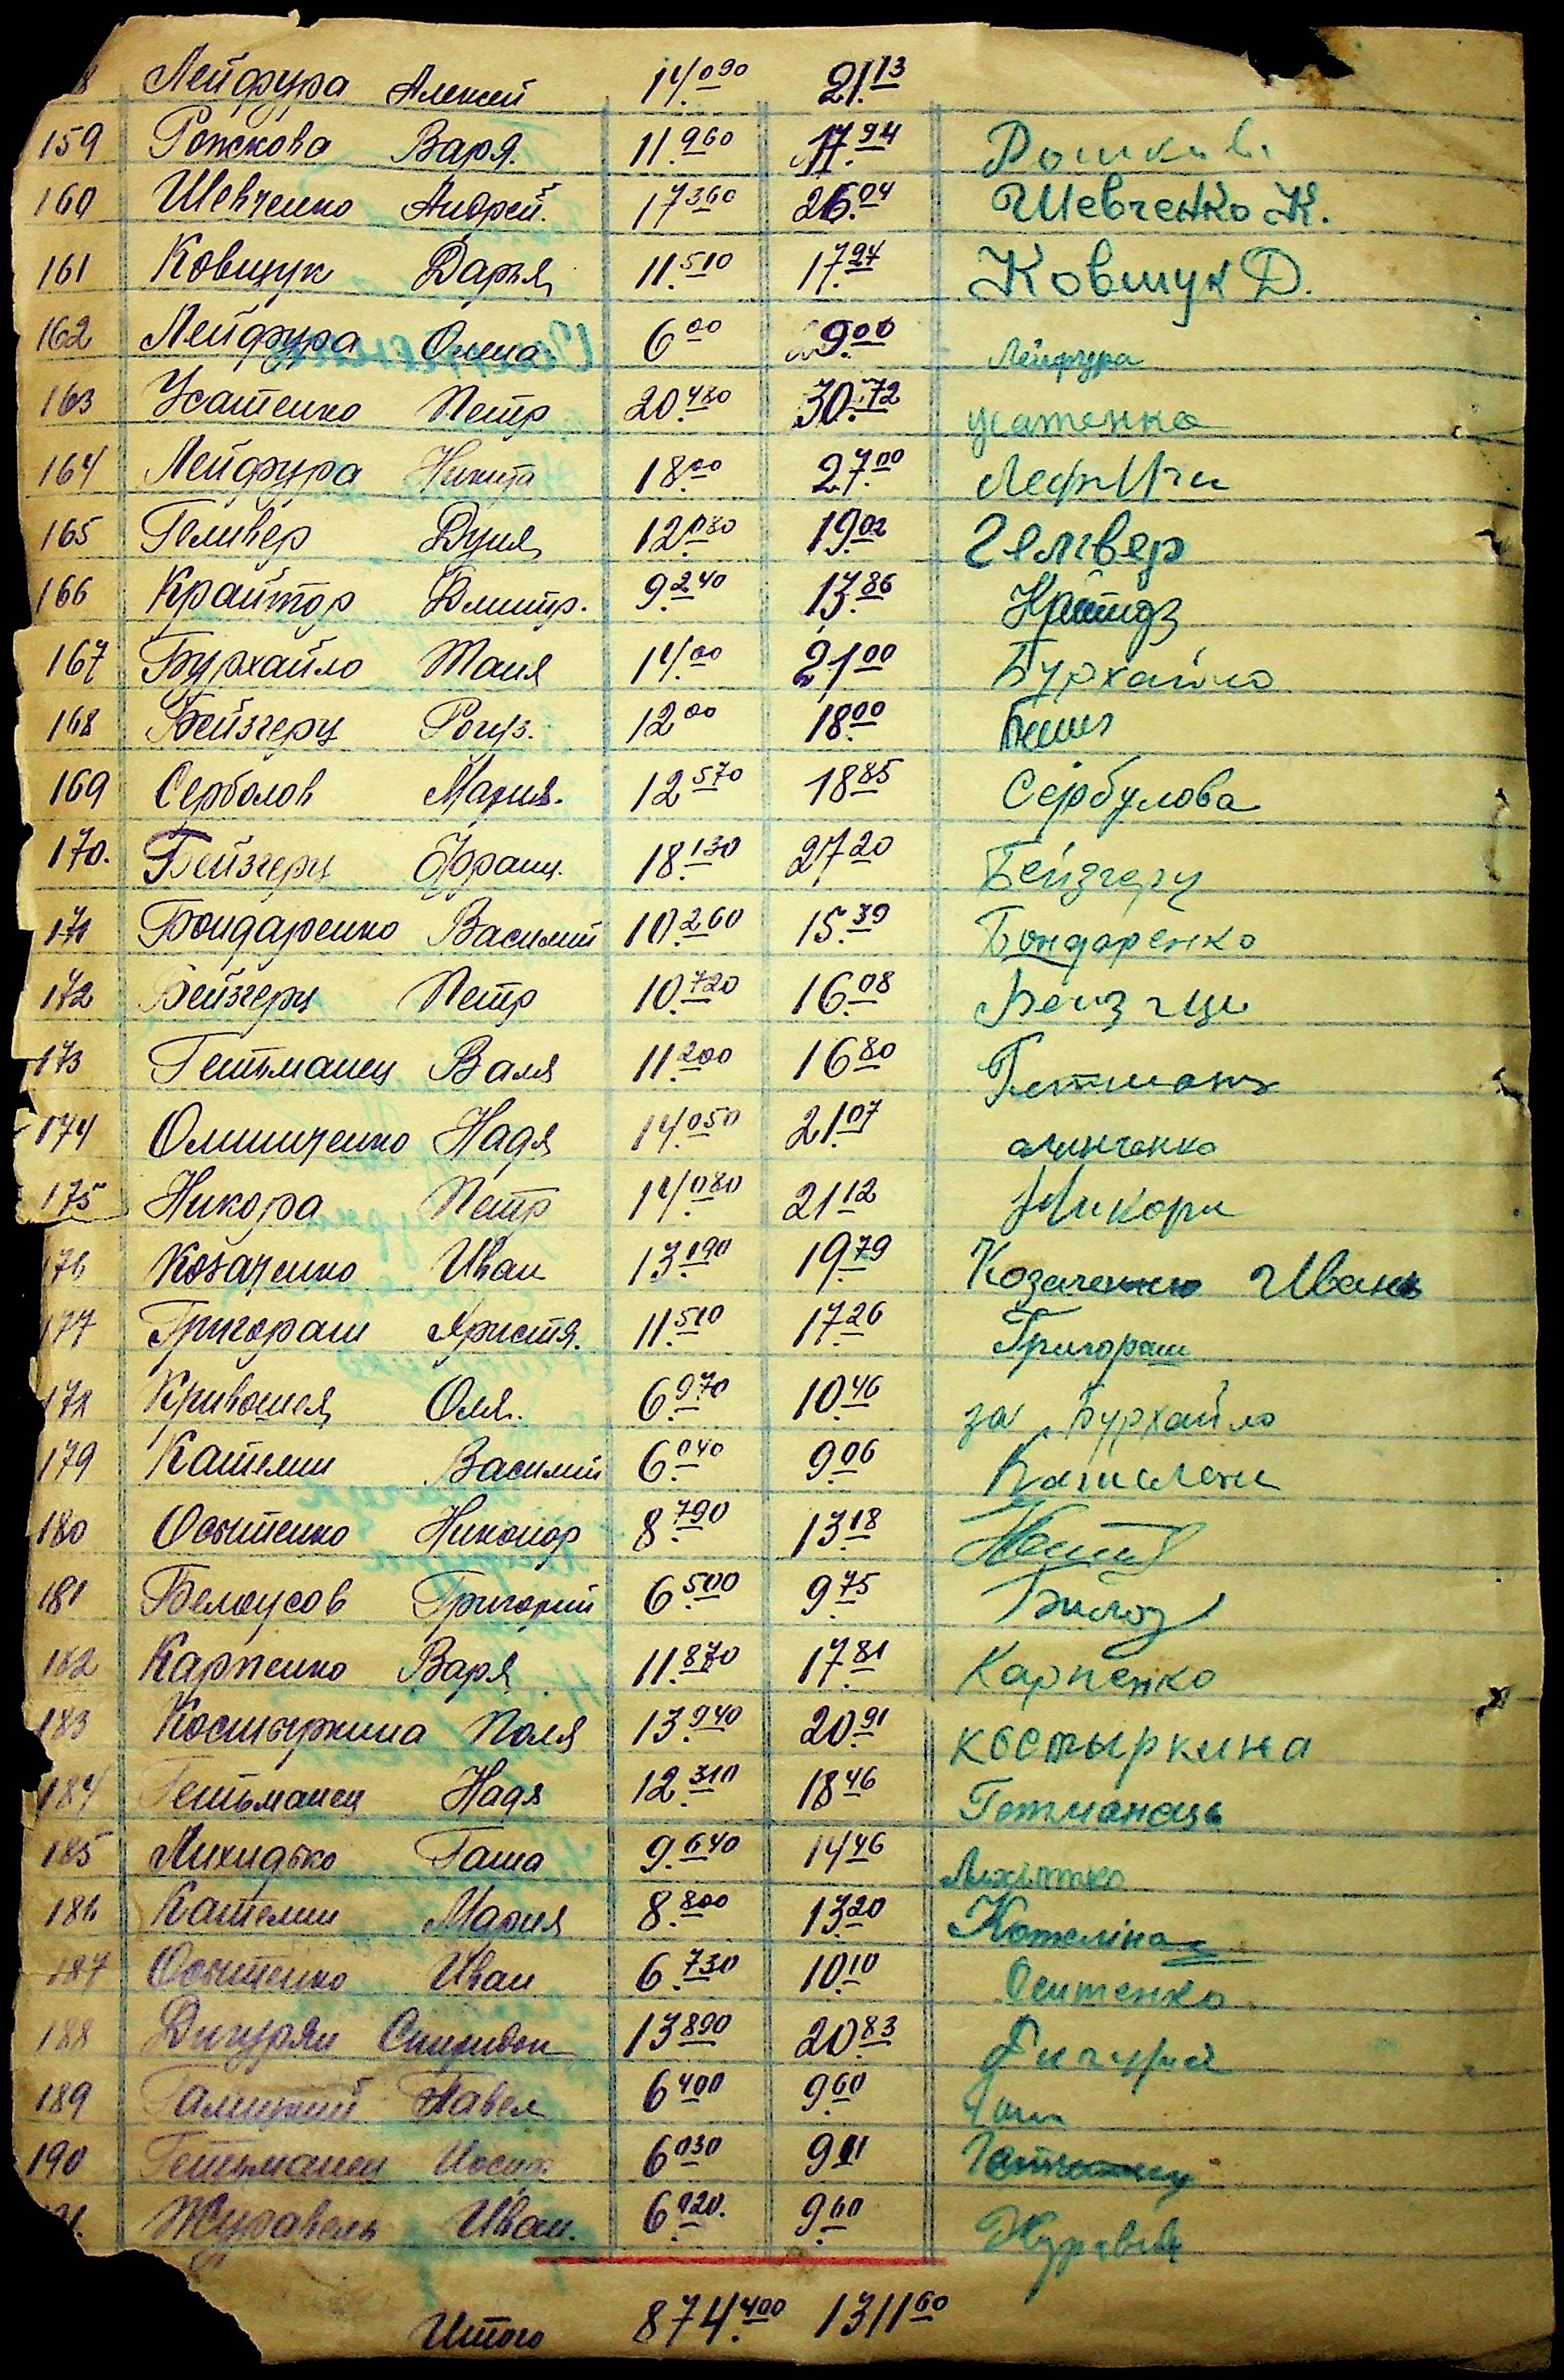 8 Лейфура Алексей 14.090 21.13
159 Рожкова Варя. 11.960 17.94
160 Шевченко Андрей. 17360 26.04 Шевченко К.
161 Ковщук Дарья 11.510 17.24 Ковшук Д.
162 Лейфура Олена 6 00 9.00 Лейфура
163 Усатенко Петр 20.480 30.72 усатенко
164 Лейфура Никита 18.00 27.00
165 Геливер Дуня 12.080 19.02 Гелівер
166 Крайтор Дмитр. 9.240 13.86
167 Бурхайло Таня 14.00 21.00 Бурхайло
168 Бейзгерц 12 00 18.00
169 Серболов Мария. 12 570 18 85 Сербулова
170. Бейзгерц Франц. 18.130 27 20 Бейзгерц
171 Бондаренко Василий 10.260 15.39 Бондаренко
172 Бейзгерц Петр 10.720 16.08
173 Гетьманец Валя 11.200 16 80
174 Олинченко Надя 14.050 21.07 олинченко
175 Никора Петр 14.080 21 12 Никори
176 Козаченко Иван 13.190 19.79 Козаченко Иван
177 Григораш Христя. 11.510 17.26 Григораш
178 Кривошея Оля. 6.970 10.46 за Бурхайло
179 Кателин Василий 6.040 9.06
180 Осытенко Никонор 8.790 13.18
181 Белоусов Григорий 6.500 9.75
182 Карпенко Варя 11.870 17.81 Карпенко
183 Костыркина Поля 13.940 20.91 костыркина
184 Гетьманец Надя 12.310 18 46 Гетманець
185 Лихидько Гаша 9.640 14 46
186 Кателин Мария 8.800 13.20 Кателіна
187 Осытенко Иван 6.730 10.10 Оситенко
188 Дигурян Спиридон 13 890 20 83
189 Галицкий Павел 6 400 9 60
190 Гетьманец Иосиф 6 030 9 01
Журавель Иван. 6.920. 9.60
Итого 874.400 1311 60